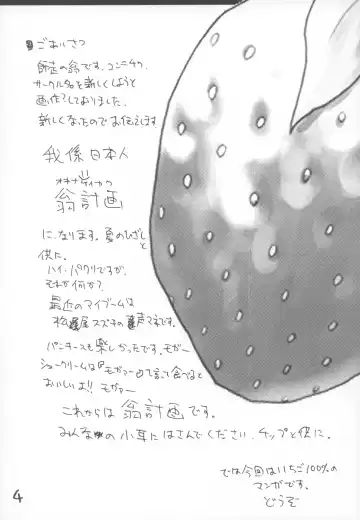 ごあいさつ
師走の翁です。コンニチワ。
サークル名を新しくしようと
画作?しておりました。
新しくなったのでお伝えします
我係日本人
オキナ ディ カク
翁計画
に、なります。夏のひざしと
供に。
ハイ・パクリですが、
それが何か?
最近のマイブームは
松尾スズキの声マネです。
パンチースも楽しかったです。モガー
シュークリームは「モガァー」って言って食べると
おいしいよ!! モガァー
これからは翁計画です。
みんなの小耳にはさんでください、チップと供に。
では今回はいちご100%の
マンガです。
どうぞ
4